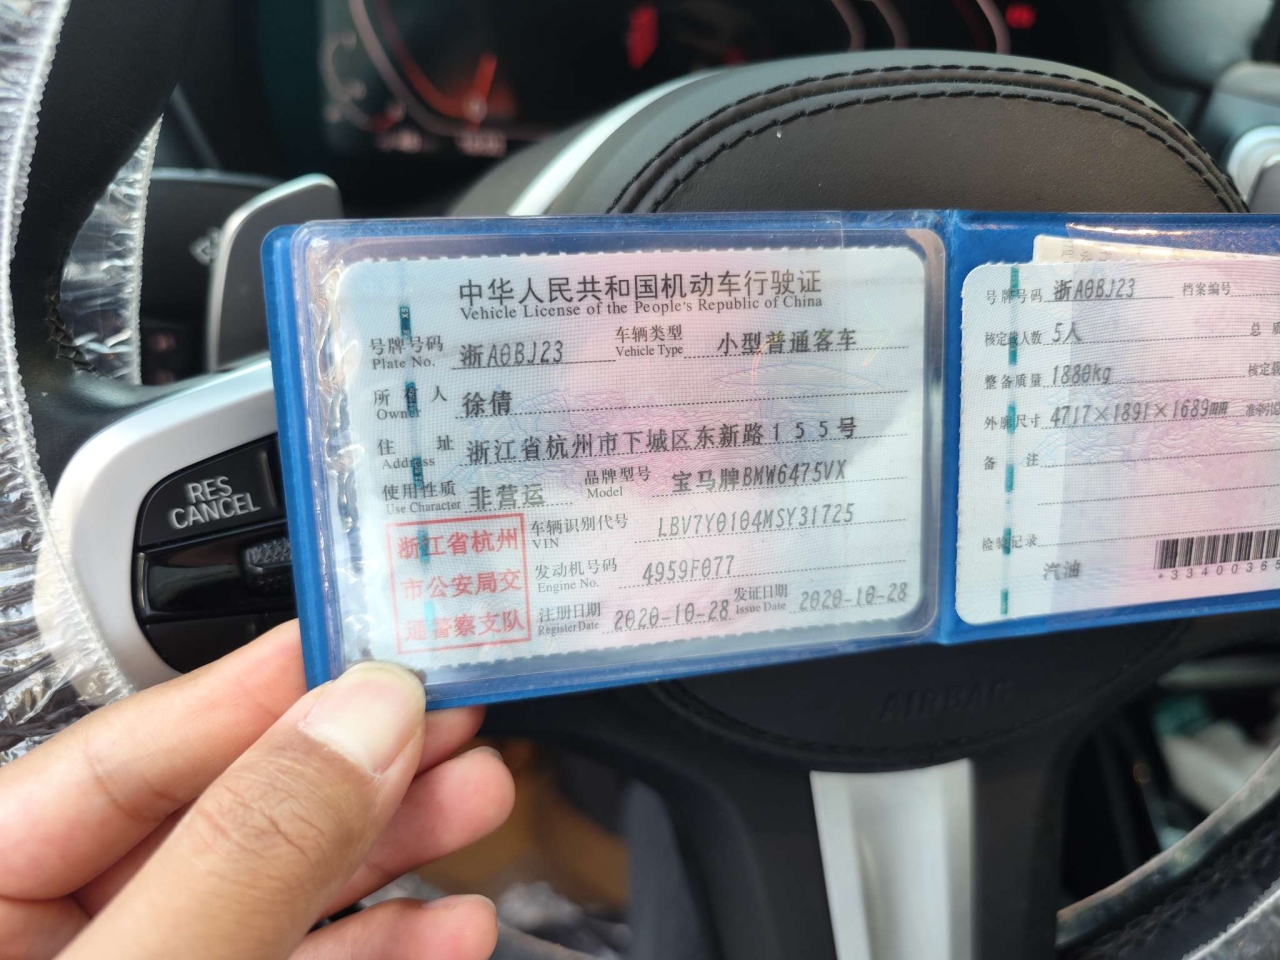 中华人民共和国机动车行驶证
Vehicle License of the People's Republic of China
号牌号码 Plate No. 浙A0BJ23 车辆类型 Vehicle Type 小型普通客车
所有人 Owner 徐倩
住址 Address 浙江省杭州市下城区东新路155号
使用性质 Use Character 非营运 品牌型号 Model 宝马牌BMW6475VX
浙江省杭州市公安局交通警察支队
车辆识别代号 VIN LBV7Y0104MSY31725
发动机号码 Engine No. 4959F077
注册日期 Register Date 2020-10-28 发证日期 Issue Date 2020-10-28
号牌号码 浙A0BJ23 档案编号
核定载人数 5人 总
整备质量 1880kg 核定载
外廓尺寸 4717×1891×1689mm 准牵引
备注
检验记录
汽油
+33400365
RES
CANCEL
AIRBAG